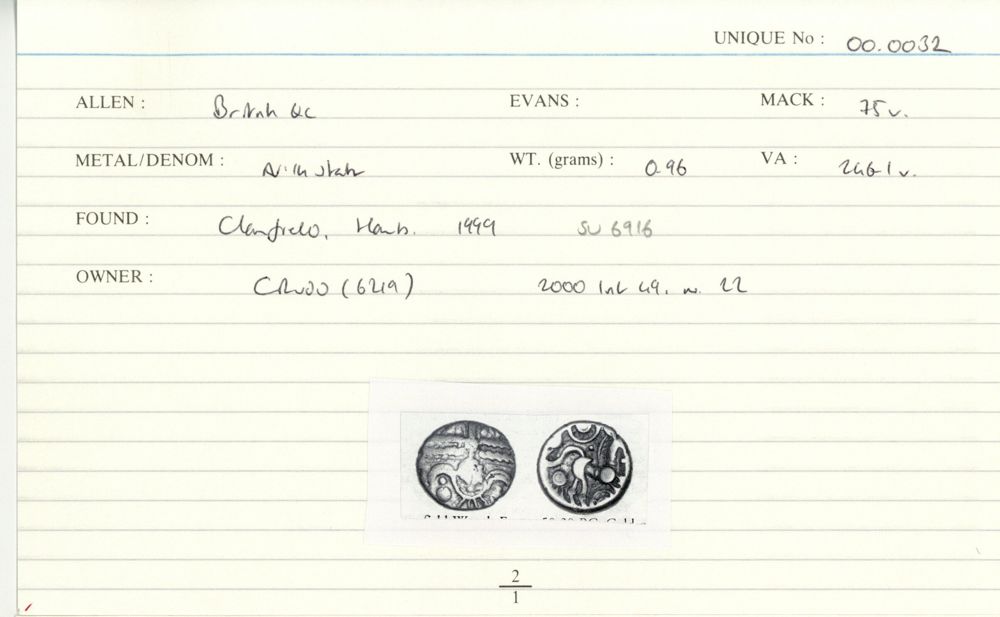 UNIQUE No : 00.0032
ALLEN : British QC EVANS : MACK : 75 v.
METAL/DENOM : WT. (grams) : 0.96 VA : 246-1 v.
FOUND : Clanfield, Hants. 1999 SU 6916
OWNER : (6219) 2000 49. 22
2
1